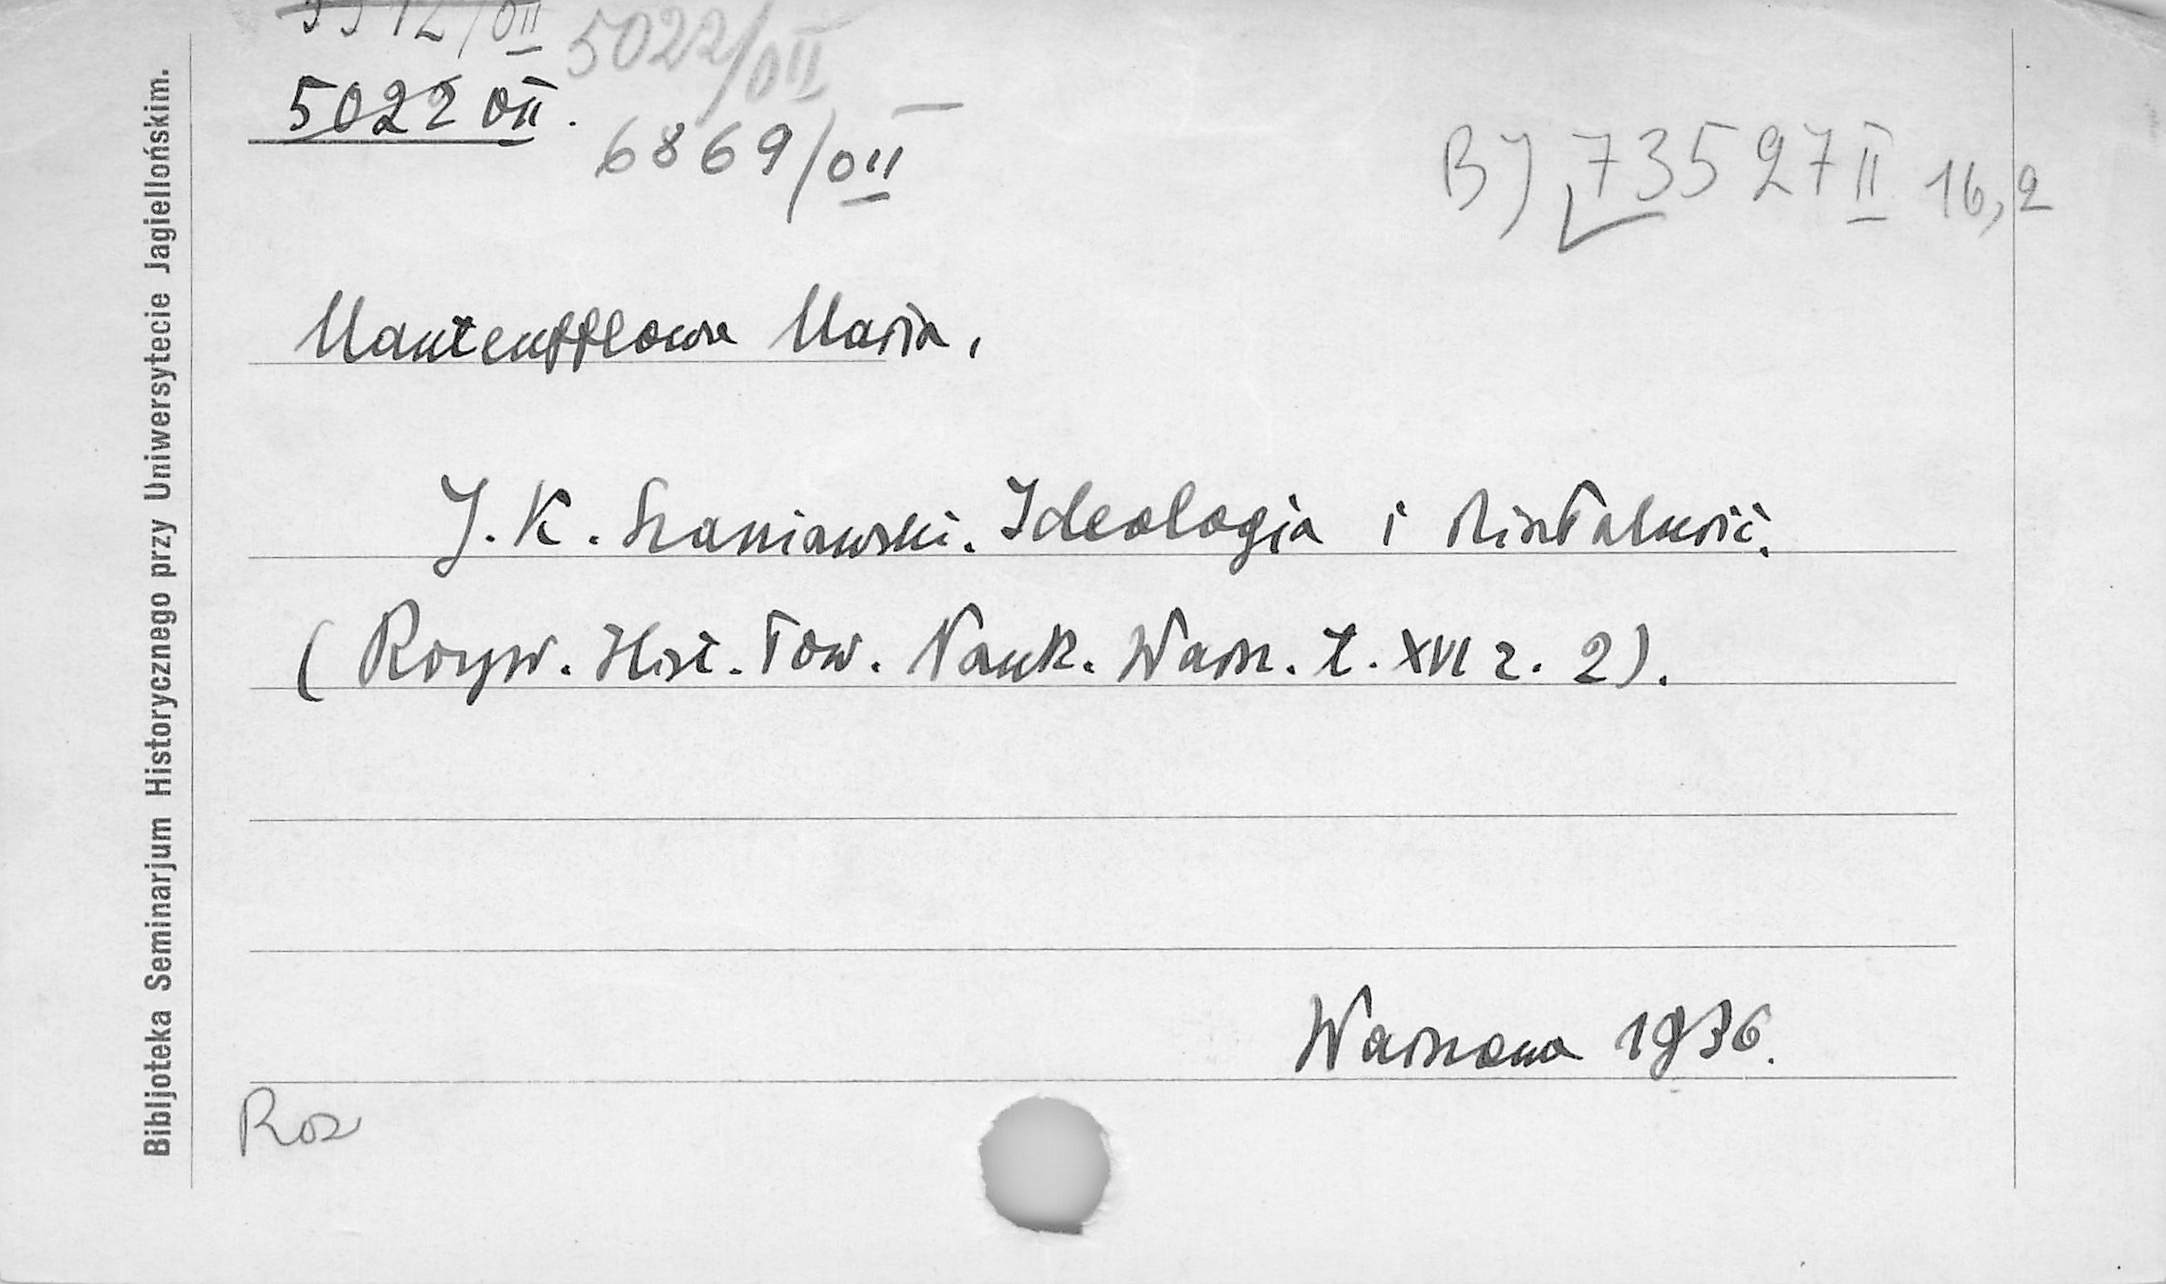 5022/OII
5022 OII.
6869/OII
BJ 73527 II 16,2
Manteufflowa Maria.
J. K. Szaniawski. Ideologia i działalność.
(Rozpr. Hist. Tow. Nauk. Warsz. t. XVI z. 2).
Warszawa 1936.
Roz
Bibljoteka Seminarjum Historycznego przy Uniwersytecie Jagiellońskim.